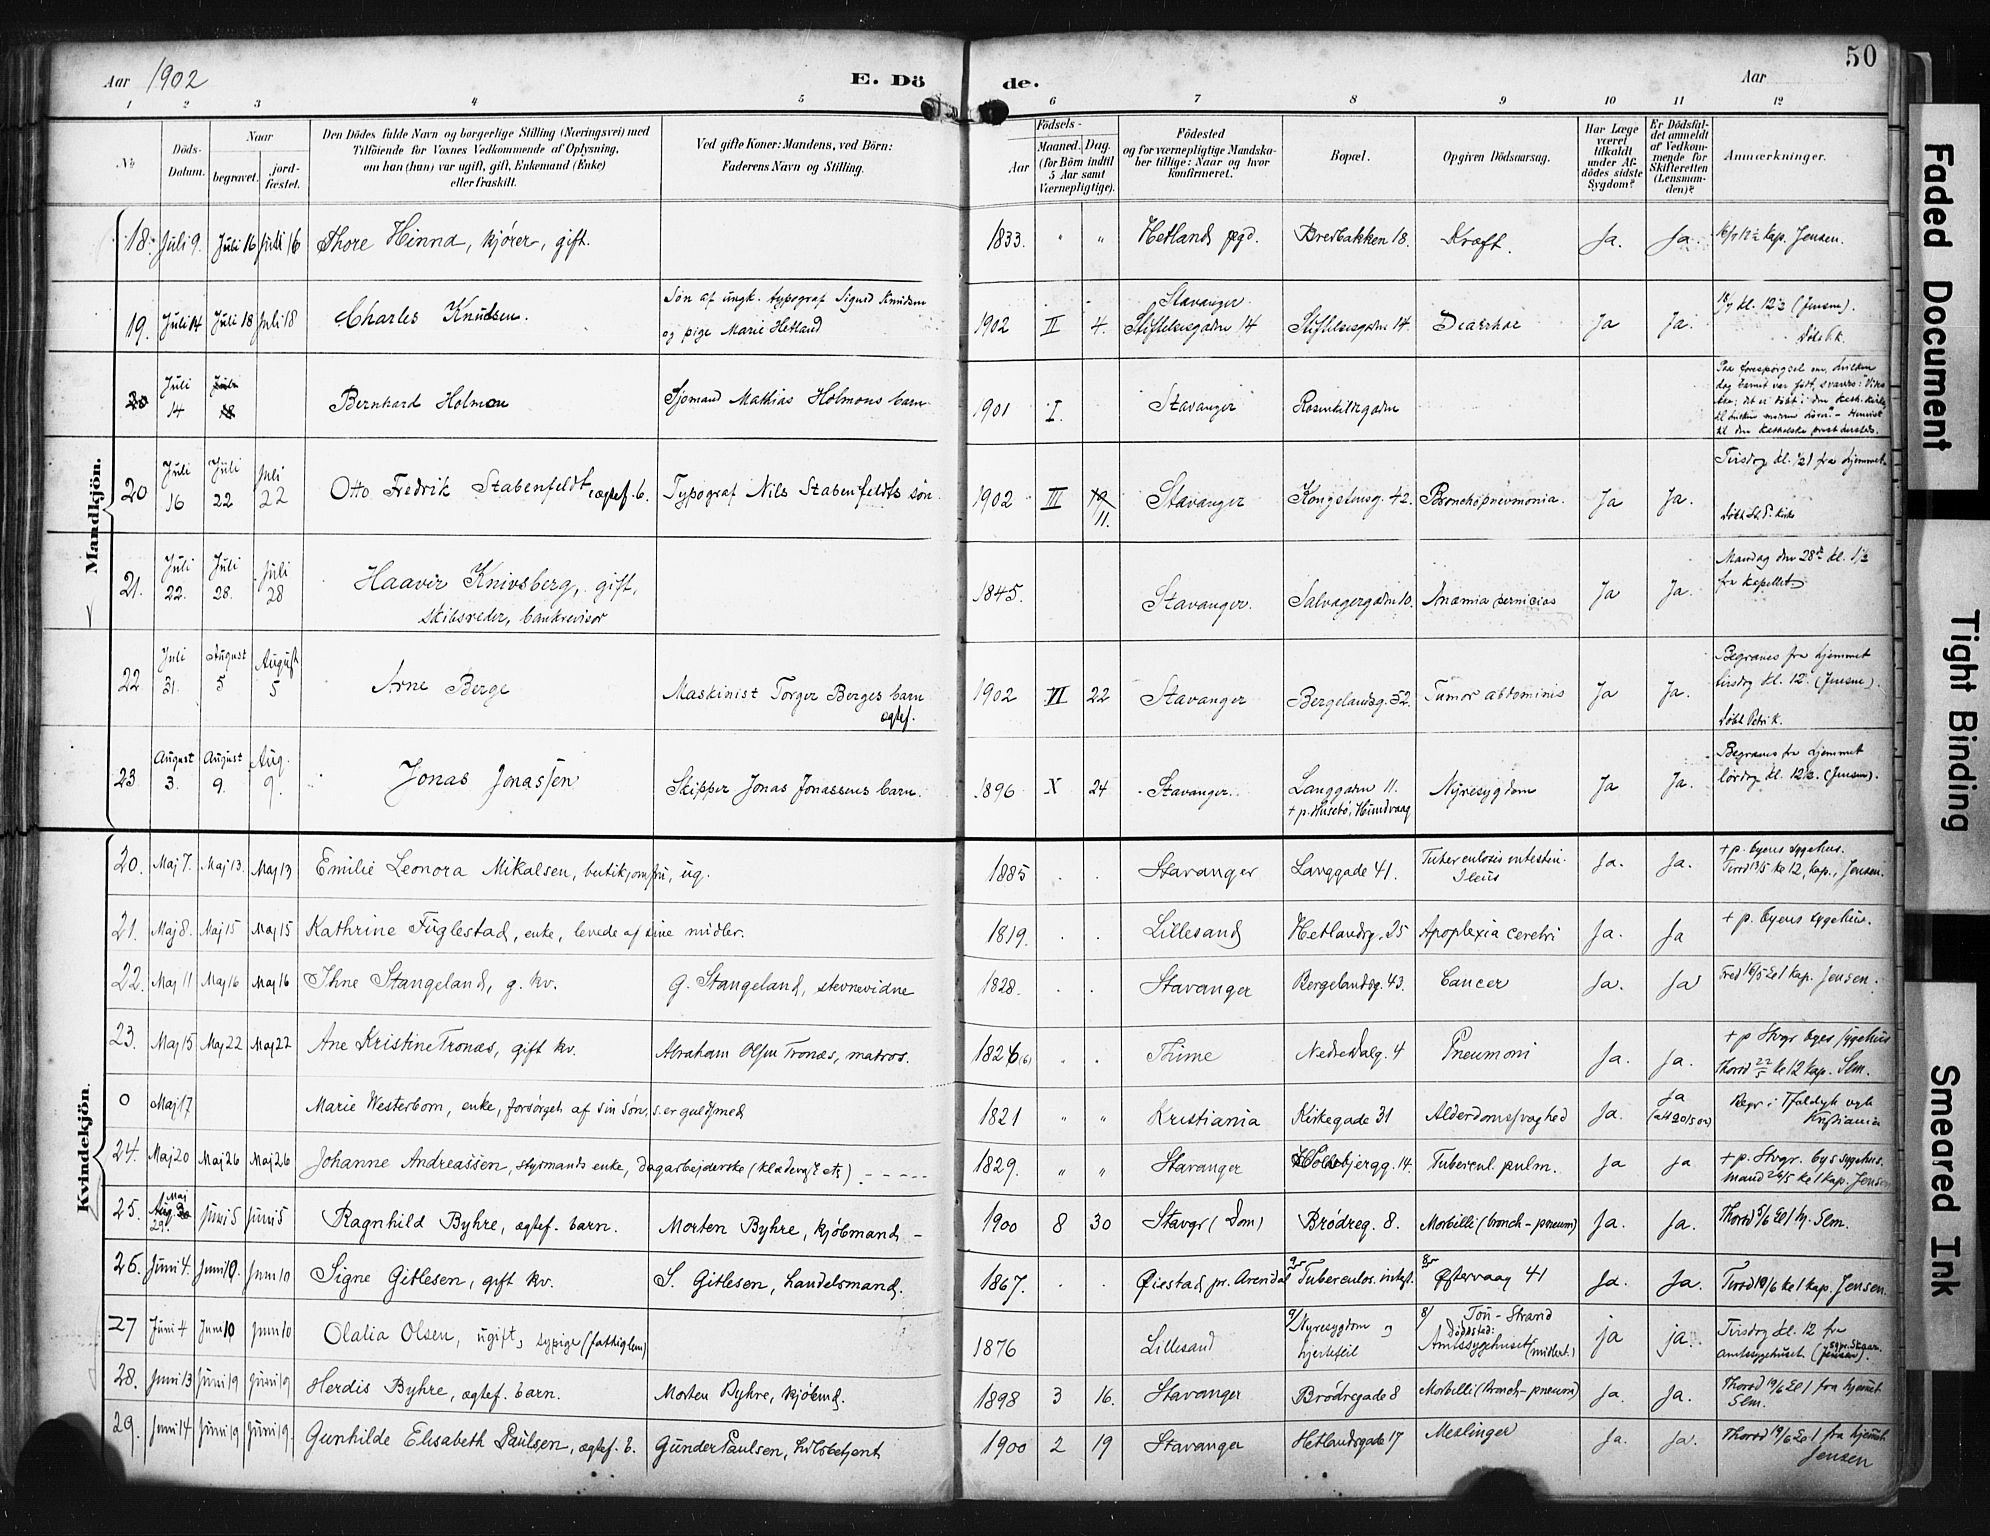 50
Aar 1902
E. Dö de.
Aar
1 2 3 4 5 6 7 8 9 10 11 12
No
Döds-Datum.
Naar
begravet.
jord-fæstet.
Den Dödes fulde Navn og borgerlige Stilling (Næringsvei) med
Tilföiende for Voxnes Vedkommende af Oplysning,
om han (hun) var ugift, gift, Enkemand (Enke)
eller fraskilt.
Ved gifte Koner: Mandens, ved Börn:
Faderens Navn og Stilling.
Födsels-
Aar
Maaned. Dag.
(for Börn indtil
5 Aar samt
Værnepligtige).
Födested
og for værnepligtige Mandska-
ber tillige: Naar og hvor
konfirmeret.
Bopæl.
Opgiven Dödsaarsag.
Har Læge
været
tilkaldt
under Af-
dødes sidste
Sygdom?
Er Dödsfal-
det anmeldt
af Vedkom-
mende for
Skifteretten
(Lensman-
den)?
Anmærkninger.
Mandkjön.
18. Juli 9. Juli 16 Juli 16 Thore Hinna, kjører, gift. 1833. " " Hetland pgd. Bredbakken 18. Kræft. Ja. Ja. 16/7 12½ kap. Jensen.
19. Juli 14 Juli 18 Juli 18 Charles Knudsen. Søn af ungk. typograf Sigurd Knudsen
og pige Marie Hetland 1902 II 4. Stavanger
Stiftelsesgaden 14 Stiftelsesgaden 14. Diarrhoe Ja Ja. 18/7 kl. 12½ (Jensen).
20 Juli 14 Juli 18 Bernhard Holmen Sjømand Mathias Holmens barn 1901 I. Stavanger Rosenkildegaden
20 Juli 16 Juli 22 Juli 22 Otto Fredrik Stabenfeldt, ægtef. b. Typograf Nils Stabenfeldts søn. 1902 III 11. Stavanger Kongstensg. 42. Bronchopneumonia. Ja Ja. Tirsdag kl. 1 fra hjemmet.
Døbt St. P. kirke
21. Juli 22. Juli 28. Juli 28 Haaver Knivsberg, gift,
skibsreder, bankrevisor 1845. Stavanger. Salvagergaden 10. Anæmia perniciøs Ja Ja. Mandag den 28de kl. 1½
fra kapellet.
22 Juli 31. August 5 August 5 Arne Berge Maskinist Torger Berges barn
ægtef. 1902 VI 22 Stavanger Bergelandsg. 52. Tumor abdominis Ja Ja. Begraves fra hjemmet
tirsdag kl. 12. (Jensen).
Døbt Petri k.
23 August 3. August 9. Aug. 9. Jonas Jonassen Skipper Jonas Jonassens barn. 1896 X 24 Stavanger. Langgaden 11.
+ p. Husebø, Hundvaag Nyresygdom Ja Ja. Begraves fra hjemmet
lørdag kl. 12½. (Jensen).
Kvindekjön.
20. Maj 7. Maj 13. Maj 13 Emilie Leonora Mikalsen, butikjomfru, ug. 1885 . . Stavanger Langgade 41. Tuberculosis intestin.
Ileus Ja. Ja. + p. byens sygehus.
Tirsd 13/5 kl 12, kap., Jensen.
21. Maj 8. Maj 15 Maj 15 Kathrine Fuglestad, enke, levede af sine midler. 1819. . . Lillesand Hetlandsg. 25 Apoplexia cerebri Ja. Ja + p. byens sygehus.
22. Maj 11 Maj 16 Maj 16 Thne Stangeland, g. kv. G. Stangeland, stevnevidne 1828. . . Stavanger Bergelandsg. 43. Cancer Ja. Ja Fred 16/5 kl 1 kap. Jensen.
23. Maj 15 Maj 22 Maj 22 Ane Kristine Tronæs, gift kv. Abraham Olsen Tronæs, matros. 1826 (6) " " Thime Nedredalg. 4 Pneumoni Ja. Ja. + p Stvgr byes sygehus
Thorsd 22/5 kl 12 kap. Slm.
0 Maj 17 Marie Westerbom, enke, forsørget af sin søn, s. er guldsmed 1821 " " Kristiania Kirkegade 31 Alderdomssvaghed Ja. Ja
(att 20/5 02) Begr i
Kristiania
24. Maj 20 Maj 26 Maj 26 Johanne Andreassen, styrmands enke, dagarbejderske (klædevask etc) 1829. " " Stavanger Holebjergg. 14. Tubercul. pulm. Ja Ja + p. Stvgr. bys sygehus.
Mand 26/5 kl 1 kap. Jensen
25. Maj 29. Juni 5 Juni 5 Ragnhild Byhre, ægtef. barn. Morten Byhre, kjøbmand 1900 8 30 Stavgr (Dom) Brødreg. 8. Morbilli (bronch-pneum) Ja. Ja. Thorsd 5/6 kl 1 hj. Slm.
26. Juni 4. Juni 10. Juni 10 Signe Gitlesen, gift kv. S. Gitlesen, handelsmand. 1867. . . Øiestad pr. Arendal Tuberculos. intest. Østervaag 41 Ja. Ja. Tirsd 10/6 kl 1 kap. Jensen.
27 Juni 4 Juni 10 Juni 10 Olalia Olsen, ugift, sypige (fattiglem) 1876 Lillesand 9/ Nyresygdom og
hjertefeil 8/ Tou - Strand
Dødssted:
Amtssygehuset (midlert.) Ja Ja. Tirsdag kl. 12 fra
amtssygehuset (Jensen).
28. Juni 13 Juni 19 Juni 19 Herdis Byhre, ægtef. barn. Morten Byhre, kjøbmd. 1898 3 16. Stavanger Brødregade 8 Morbilli (bronch-pneum) Ja. Ja. Thorsd 19/6 kl 1 fra hjemmet
Slm.
29. Juni 14 Juni 19 Juni 19. Gunhilde Elisabeth Paulsen, ægtef. b. Gunder Paulsen, toldbetjent 1900 2 19 Stavanger Hetlandsgade 17 Meslinger Ja. Ja. Thorsd 19/6 kl 1 fra hjemmet
Jensen
Faded Document
Tight Binding
Smeared Ink